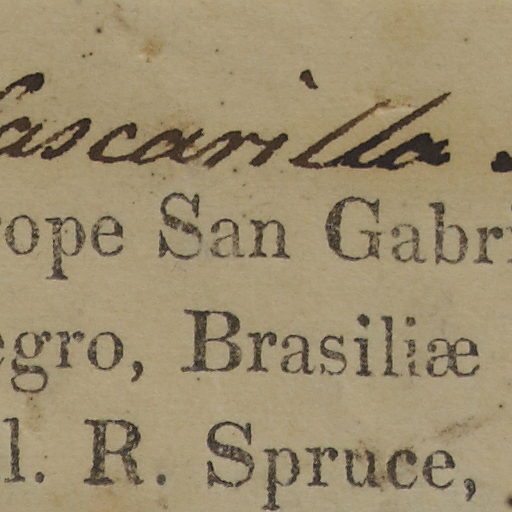 Cascarilla
rope San Gabri
egro, Brasiliæ
l. R. Spruce,